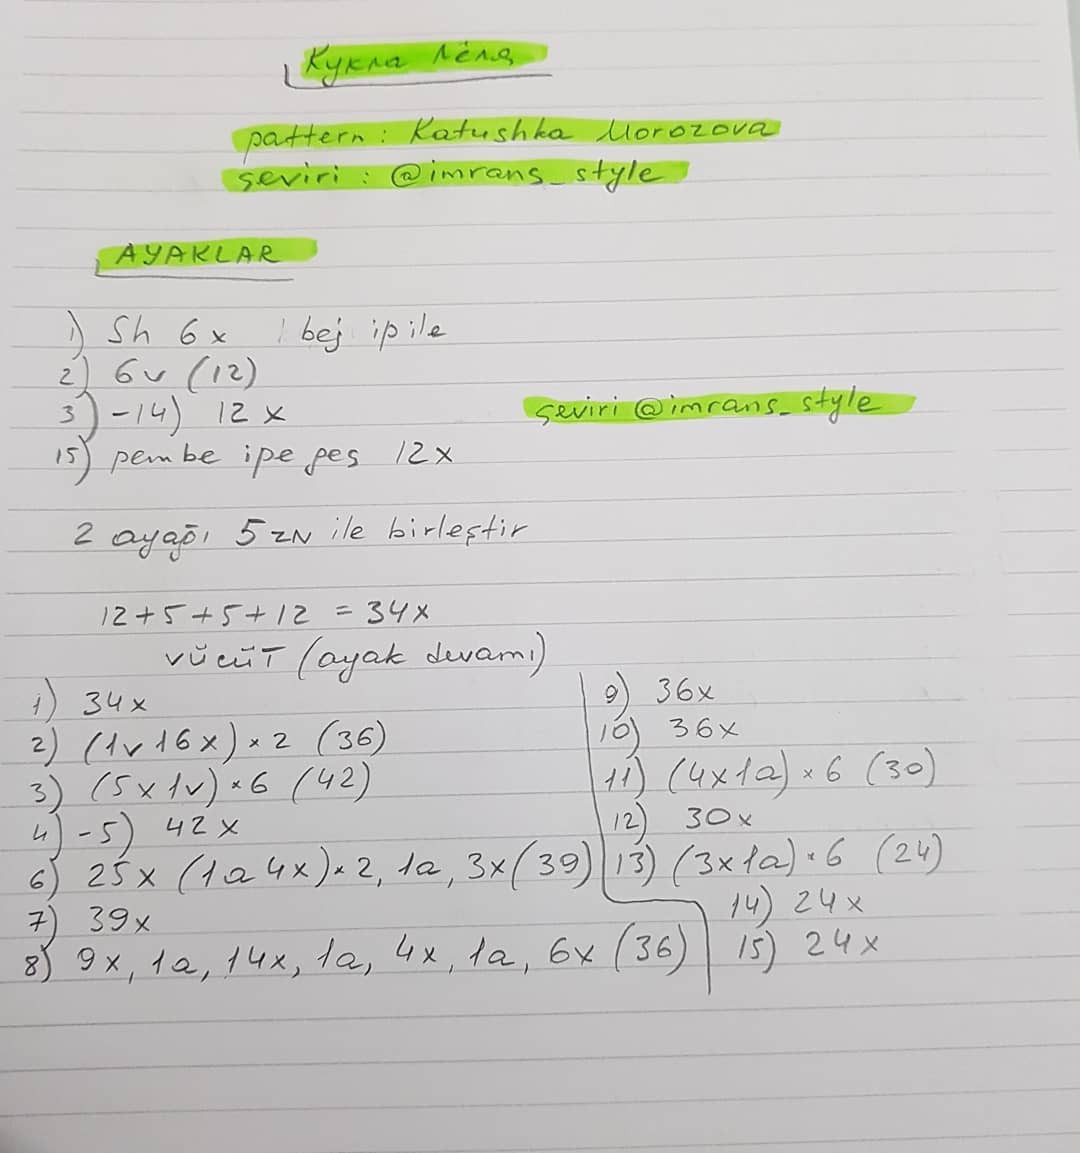 Кукла Лёля
pattern: Katushka Morozova
çeviri: @imrans_style
AYAKLAR
1) Sh 6x bej ip ile
2) 6v (12)
3)-14) 12x
çeviri @imrans_style
15) pembe ipe geç 12x
2 ayağı 5 zN ile birleştir
12+5+5+12 = 34x
VÜCÜT (ayak devamı)
1) 34x
2) (1v 16x)×2 (36)
3) (5x1v)×6 (42)
4)-5) 42x
6) 25x (1a 4x)×2, 1a, 3x (39)
7) 39x
8) 9x, 1a, 14x, 1a, 4x, 1a, 6x (36)
9) 36x
10) 36x
11) (4x1a)×6 (30)
12) 30x
13) (3x1a)×6 (24)
14) 24x
15) 24x